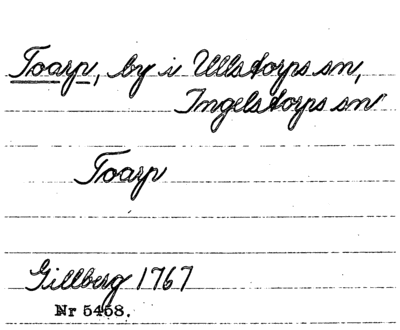 Toarp, by i Ullstorps sn,
Ingelstorps sn
Toarp
Gillberg 1767
Nr 5458.